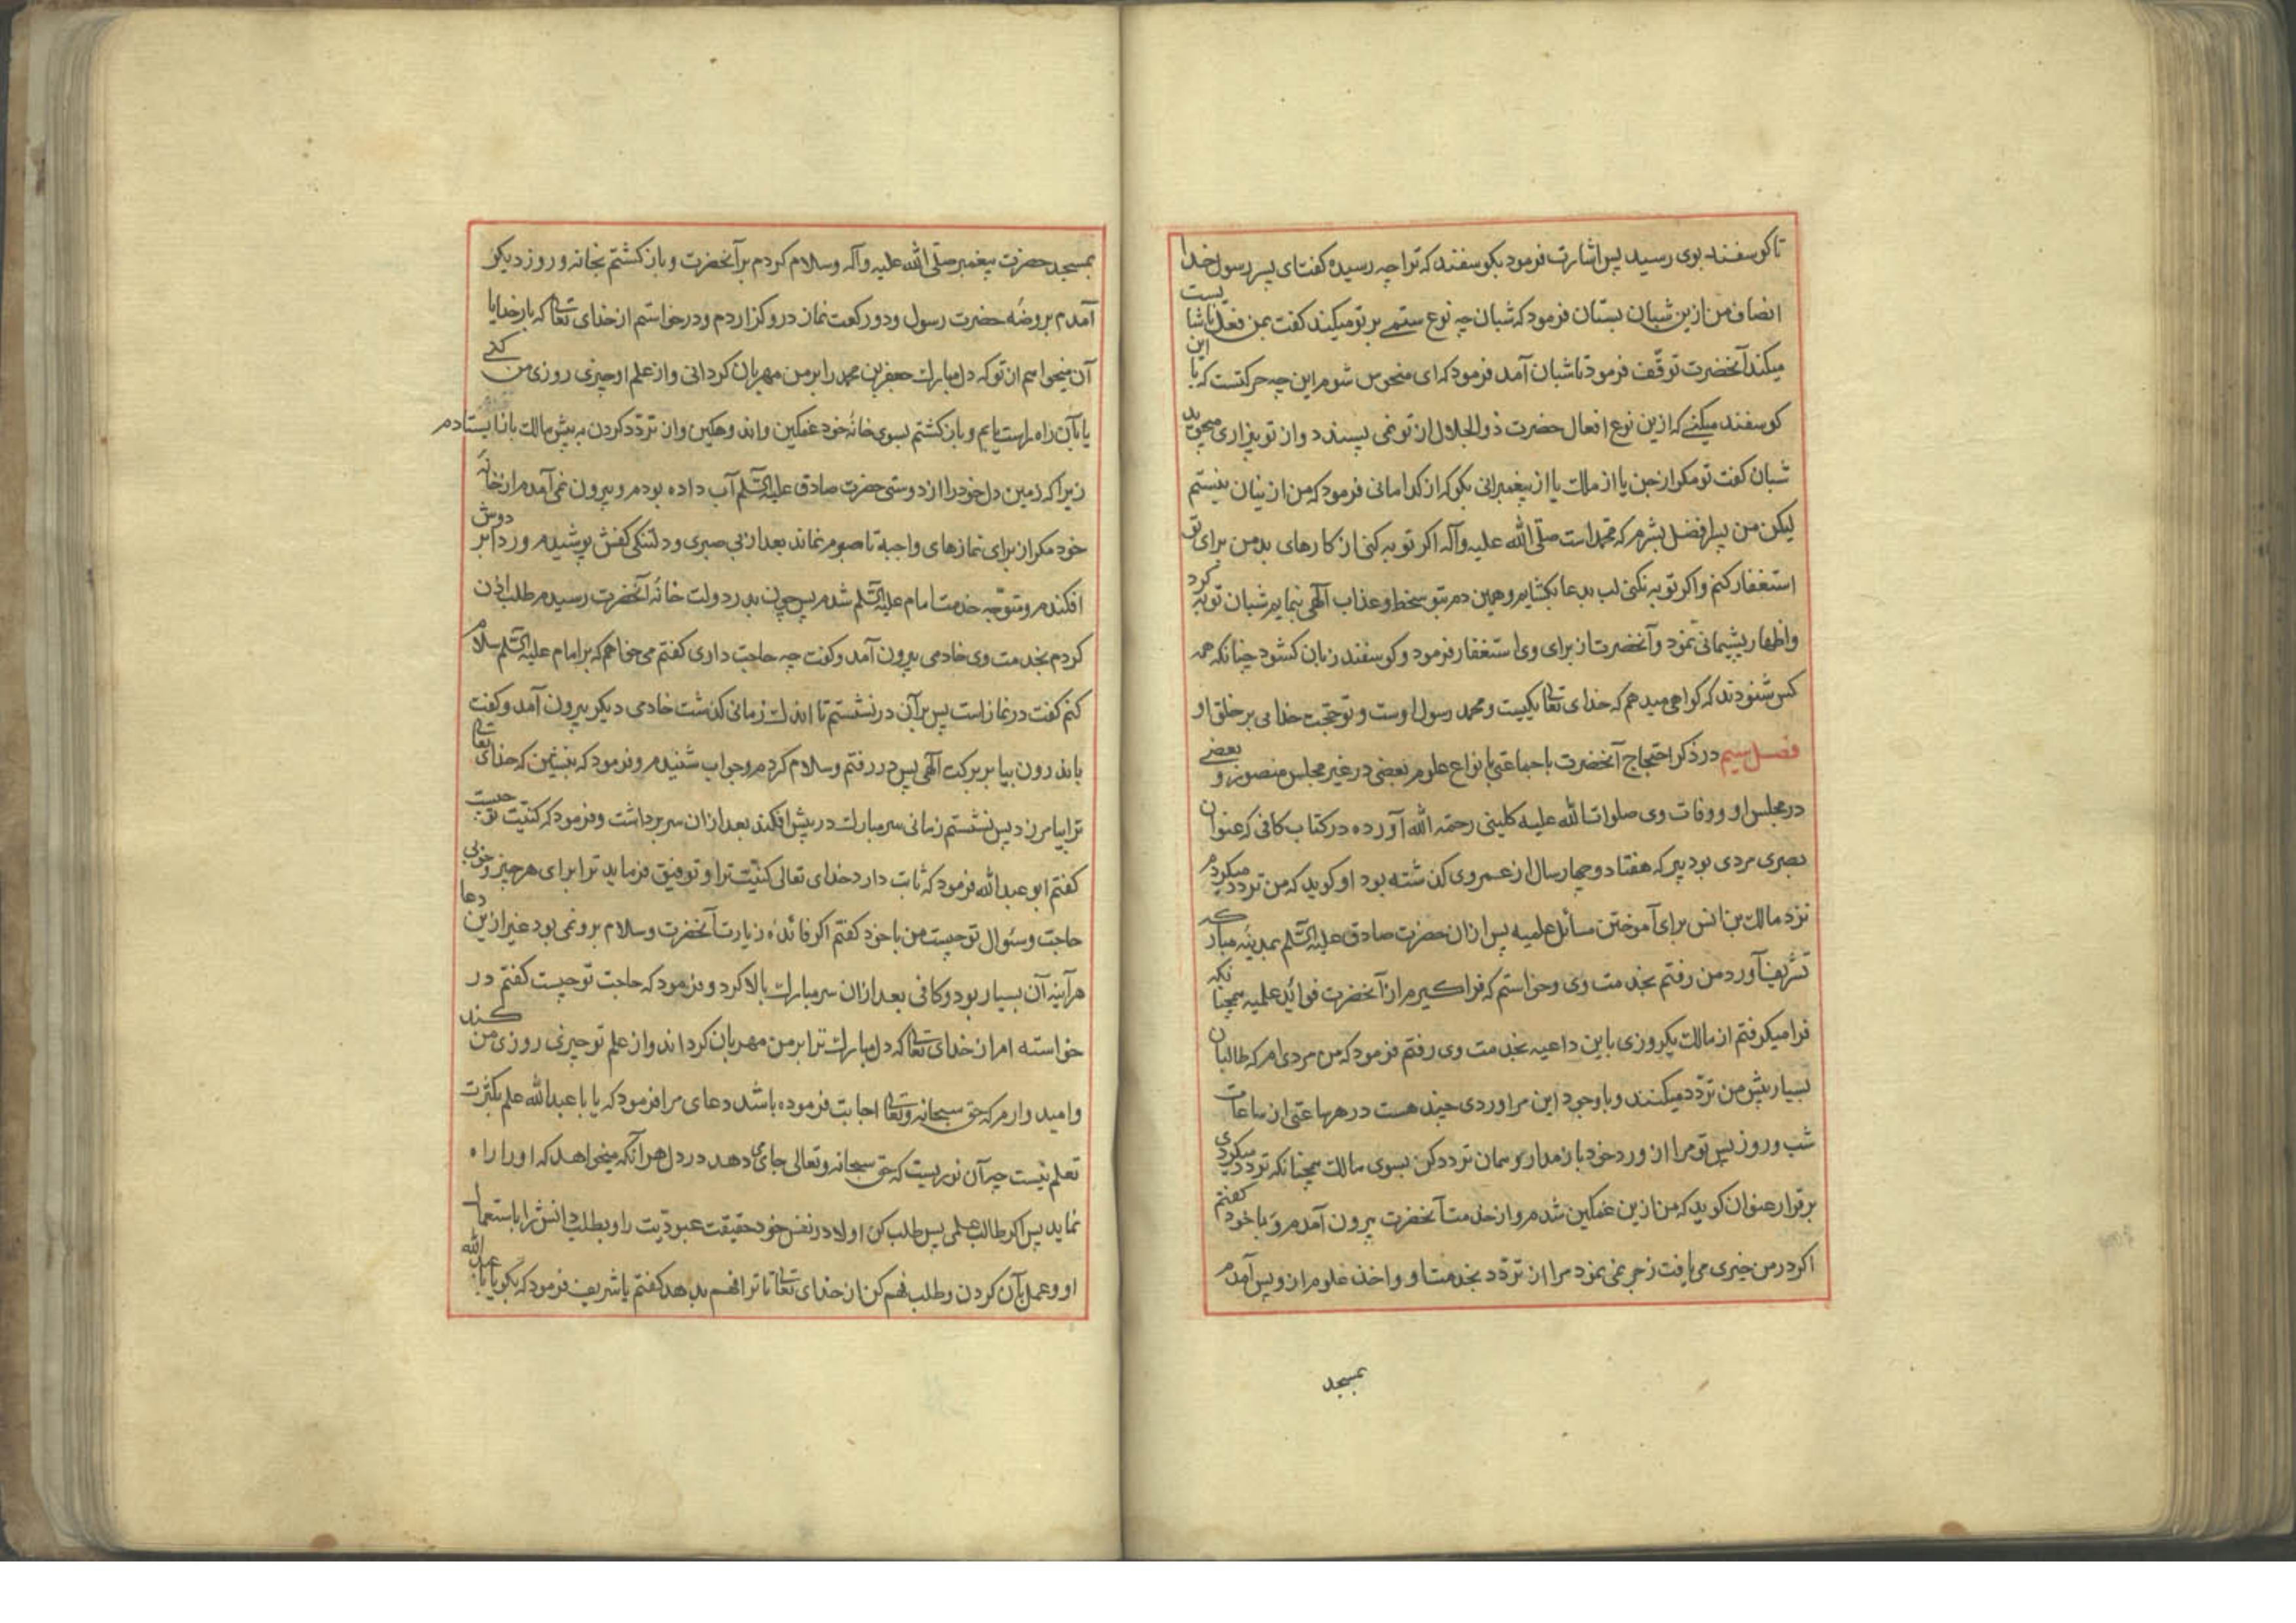 تا کوسفند بوی رسید پس اشارت فرمود بکوسفند که ترا چه رسیده کفت ای پسر رسول خدا
انصاف من ازین شبان بستان فرمود که شبان چه نوع ستمی بر تو میکند کفت بمن فعل ناشایست
میکند آنحضرت توقّف فرمود تا شبان آمد فرمود که ای منحوس شوم این چه حرکتست که با این
کوسفند میکنی که ازین نوع افعال حضرت ذو الجلال از تو نمی پسندد و از تو بیزاری میجوید
شبان کفت تو مکر از جن یا از ملک یا از پیغمبرانی بکو که از کدامانی فرمود که من ازینان نیستم
لیکن من پسر افضل بشرم که محمد است صلّی الله علیه وآله اکر توبه کنی از کارهای بد من برای تو
استغفار کنم و اکر توبه نکنی لب بدعا بکشایم و همین دم بتو سخط و عذاب آلهی بنمایم شبان توبه کرد
واظهار پشیمانی نمود و آنحضرت از برای وی استغفار فرمود و کوسفند زبان کشود چنانکه همه
کس شنودند که کواهی میدهم که خدای تعالی یکیست و محمد رسول اوست و تو حجّت خدایی بر خلق او
فصل سیم در ذکر احتجاج آنحضرت با جماعتی بانواع علوم بعضی در غیر مجلس منصور و بعضی
در مجلس او و وفات وی صلوات الله علیه کلینی رحمه الله آورده در کتاب کافی که عنوان
بصری مردی بود پیر که هفتاد و چهار سال از عمر وی کذشته بود او کوید که من تردد میکردم
نزد مالک بن انس برای آموختن مسائل علمیه پس از ان حضرت صادق علیه السّلم بمدینه مبارکه
تشریف آورد من رفتم بخدمت وی وخواستم که فرا کیرم از آنحضرت فوائد علمیه همچنانکه
فرا میکرفتم از مالک یکروزی باین داعیه بخدمت وی رفتم فرمود که من مردی ام که طالبان
بسیار پیش من تردّد میکنند و با وجود این مرا وردی چند هست در هر ساعتی از ساعات
شب و روز پس تو مرا از ورد خود باز مدار و همان تردد کن بسوی مالک همچنانکه تردد میکردی
برقرار عنوان کوید که من ازین غمکین شدم و از خدمت آنحضرت بیرون آمدم و با خود کفتم
اکر در من خیری می یافت زجر نمی نمود مرا از تردّد بخدمت او و اخذ علوم ازو پس آمدم
بمسجد
بمسجد حضرت پیغمبر صلّی الله علیه وآله وسلام کردم بر آنحضرت و باز کشتم بخانه و روز دیکر
آمدم بروضه حضرت رسول و دو رکعت نماز درو کزاردم و درخواستم از خدای تعالی که بار خدایا
آن میخواهم از تو که دل مبارک جعفر بن محمد را بر من مهربان کردانی و از علم او چیزی روزی من کنی
یا بآن راه راست یابم و باز کشتم بسوی خانه خود غمکین و اندوهکین و از تردّد کردن به پیش مالک باز ایستادم
زیرا که زمین دل خود را از دوستی حضرت صادق علیه السّلم آب داده بودم و بیرون نمی آمدم از خانه
خود مکر از برای نمازهای واجبه تا صبرم نماند بعد از بی صبری و دلتنکی کفش پوشیدم و ردا بر دوش
افکندم و متوجّه خدمت امام علیه السّلم شدم پس چون بدر دولت خانه آنحضرت رسیدم طلب اذن
کردم بخدمت وی خادمی بیرون آمد و کفت چه حاجت داری کفتم می خواهم که بر امام علیه السّلم سلام
کنم کفت در نماز است پس بر آن در نشستم تا اندک زمانی کذشت خادمی دیکر بیرون آمد و کفت
باندرون بیا بر برکت آلهی پس در رفتم وسلام کردم و جواب شنیدم و فرمود که بنشین که خدای تعالی
ترا بیامرزد پس نشستم زمانی سر مبارک در پیش افکند بعد از ان سر برداشت و فرمود که کنیت تو چیست
کفتم ابو عبد الله فرمود که ثابت دارد خدای تعالی کنیت ترا و توفیق فرماید ترا برای هر چیز و خوبی
حاجت و سئوال تو چیست من با خود کفتم اکر فائده زیارت آنحضرت وسلام برو نمی بود غیر ازین دعا
هر آینه آن بسیار بود و کافی بعد از ان سر مبارک بالا کرد و فرمود که حاجت تو چیست کفتم در
خواسته ام از خدای تعالی که دل مبارک ترا بر من مهربان کرداند و از علم تو چیزی روزی من کند
و امیدوارم که حق سبحانه و تعالی اجابت فرموده باشد دعای مرا فرمود که یا با عبد الله علم بکثرت
تعلم نیست چه آن نوریست که حق سبحانه و تعالی جای می دهد در دل هر آنکه میخواهد که او را راه
نماید پس اکر طالب علمی پس طلب کن اولا در نفس خود حقیقت عبودیت را و بطلب دانش را باستعمال
او و عمل بآن کردن و طلب فهم کن از خدای تعالی تا ترا فهم بدهد کفتم یا شریف فرمود که بکو یا با عبد الله